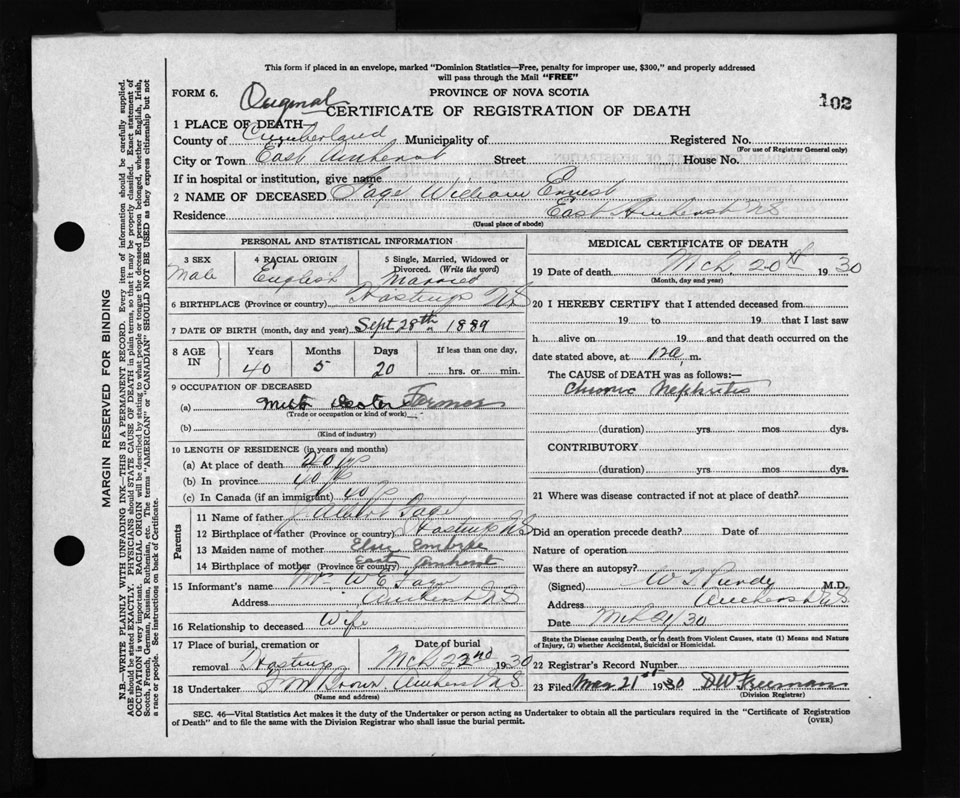 This form if placed in an envelope, marked "Dominion Statistics—Free, penalty for improper use, $300," and properly addressed
will pass through the Mail "FREE"
FORM 6.
PROVINCE OF NOVA SCOTIA
Original
CERTIFICATE OF REGISTRATION OF DEATH
102
1 PLACE OF DEATH—
County of Cumberland Municipality of Registered No.
(For use of Registrar General only)
City or Town East Amherst Street House No.
If in hospital or institution, give name
2 NAME OF DECEASED Sage William Ernest
Residence East Amherst NS
(Usual place of abode)
PERSONAL AND STATISTICAL INFORMATION
3 SEX
Male
4 RACIAL ORIGIN
English
5 Single, Married, Widowed or
Divorced. (Write the word)
Married
6 BIRTHPLACE (Province or country) Hastings NS
7 DATE OF BIRTH (month, day and year) Sept 28th 1889
8 AGE
IN
Years Months Days If less than one day,
40 5 20 hrs. or min.
9 OCCUPATION OF DECEASED
(a) Farmer
(Trade or occupation or kind of work)
(b)
(Kind of industry)
10 LENGTH OF RESIDENCE (in years and months)
(a) At place of death 20
(b) In province 40
(c) In Canada (if an immigrant) 40
Parents
11 Name of father Albert Sage
12 Birthplace of father (Province or country) Hastings NS
13 Maiden name of mother Embree
14 Birthplace of mother (Province or country) East Amherst
15 Informant's name Mrs W E Sage
Address Amherst NS
16 Relationship to deceased Wife
17 Place of burial, cremation or
removal Hastings
Date of burial
Mch 22nd 1930
18 Undertaker Brown Amherst NS
(Name and address)
MEDICAL CERTIFICATE OF DEATH
19 Date of death Mch. 20th 1930
(Month, day and year)
20 I HEREBY CERTIFY that I attended deceased from
19 to 19 that I last saw
h alive on 19 and that death occurred on the
date stated above, at 12 a, m.
The CAUSE of DEATH was as follows:—
Chronic Nephritis
(duration) yrs. mos. dys.
CONTRIBUTORY
(duration) yrs. mos. dys.
21 Where was disease contracted if not at place of death?
Did an operation precede death? Date of
Nature of operation
Was there an autopsy?
(Signed) Purdy M.D.
Address Amherst NS
Date Mch 21/30
State the Disease causing Death, or in death from Violent Causes, state (1) Means and Nature
of Injury, (2) whether Accidental, Suicidal or Homicidal.
22 Registrar's Record Number
23 Filed Mar 21st 1930 DW Freeman
(Division Registrar)
SEC. 46—Vital Statistics Act makes it the duty of the Undertaker or person acting as Undertaker to obtain all the particulars required in the "Certificate of Registration
of Death" and to file the same with the Division Registrar who shall issue the burial permit.
(OVER)
MARGIN RESERVED FOR BINDING
N.B.—WRITE PLAINLY WITH UNFADING INK—THIS IS A PERMANENT RECORD. Every item of information should be carefully supplied.
AGE should be stated EXACTLY. PHYSICIANS should STATE CAUSE OF DEATH in plain terms, so that it may be properly classified. Exact statement of
OCCUPATION is very important. RACIAL ORIGIN will be described by stating to what people or tongue the deceased person belonged, whether English, Irish,
Scotch, French, German, Russian, Ruthenian, etc. The terms "AMERICAN" or "CANADIAN" SHOULD NOT BE USED as they express citizenship but not
a race or people. See instructions on back of Certificate.